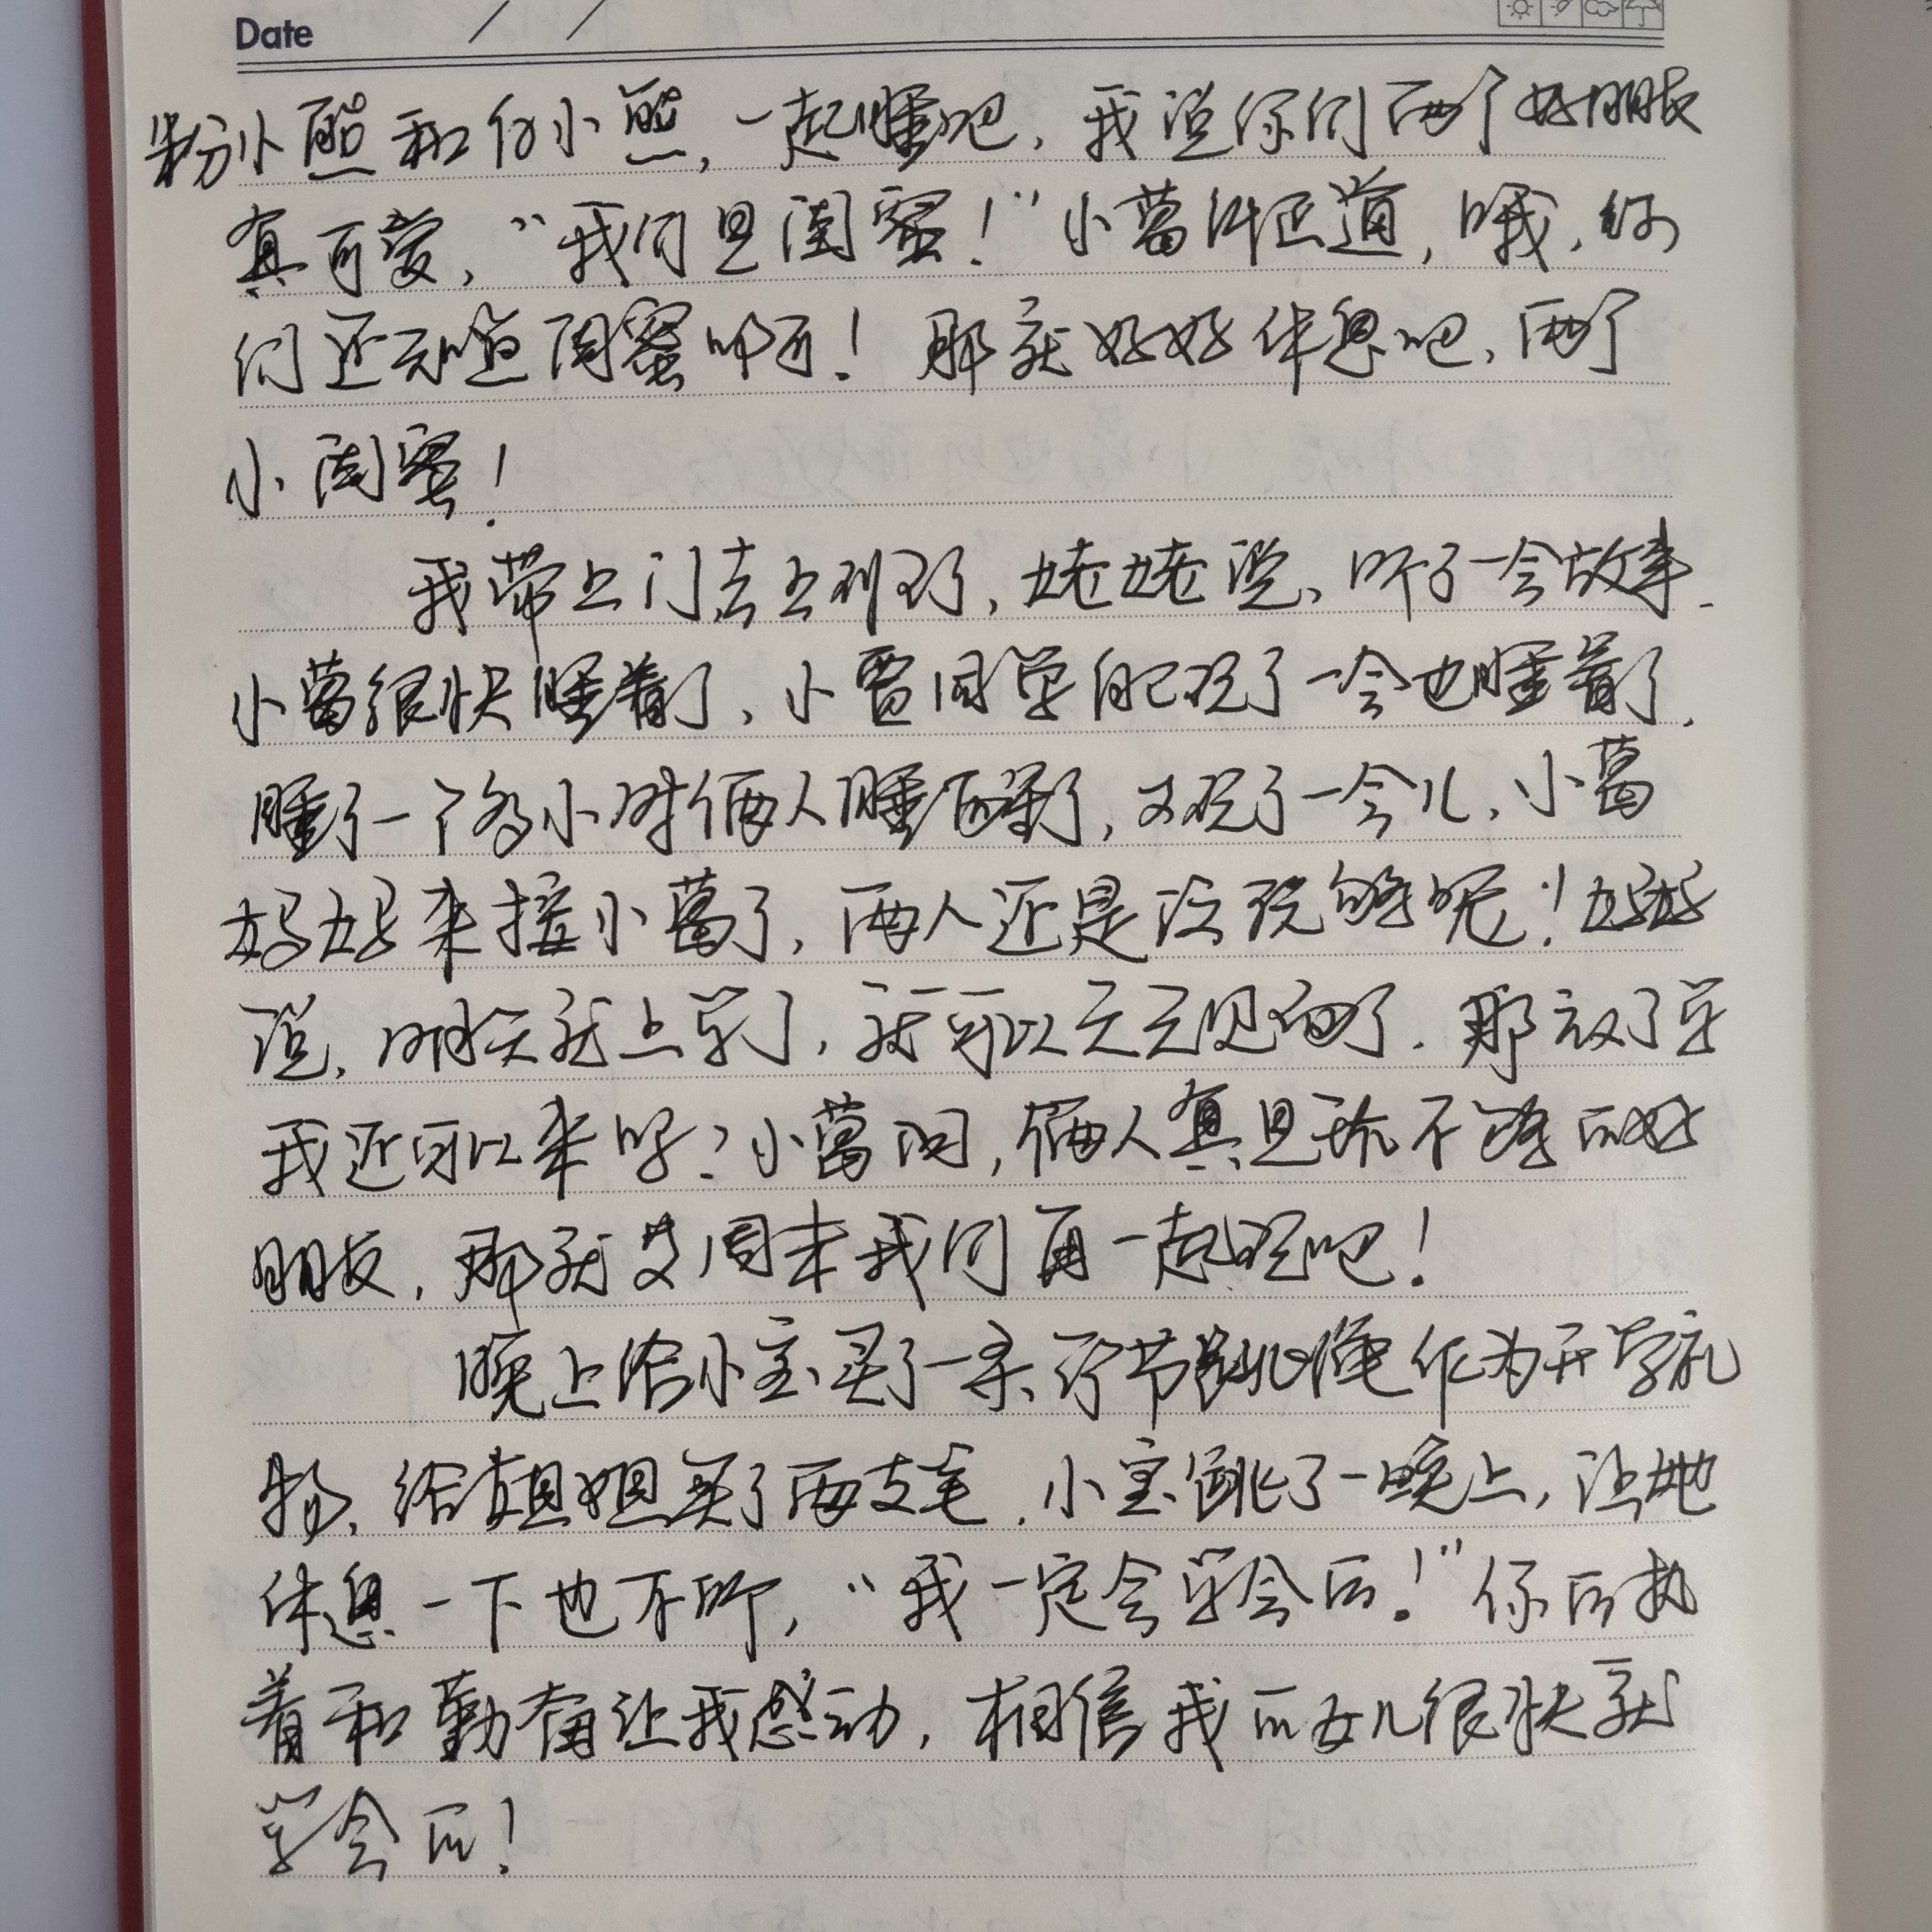 Date / /
粉小熊和白小熊,一起睡吧,我说你们两个好朋友
真可爱,“我们是闺蜜!”小葛纠正道,哦,你
们还知道闺蜜啊!那就好好休息吧,两个
小闺蜜!
我带上门去上班了,姥姥说,听了一会故事,
小葛很快睡着了,小贾同学自己玩了一会也睡着了,
睡了一个多小时俩人睡醒了,又玩了一会儿,小葛
妈妈来接小葛了,两人还是没玩够呢!姥姥
说,明天就上学了,就可以天天见面了.那放了学
我还可以来吗?小葛问,俩人真是玩不够的好
朋友,那就等周末我们再一起玩吧!
晚上给小宝买了一条竹节跳绳作为开学礼
物,给姐姐买了两支笔.小宝跳了一晚上,让她
休息一下也不听,“我一定会学会的!”你的执
着和勤奋让我感动,相信我的女儿很快就
学会的!